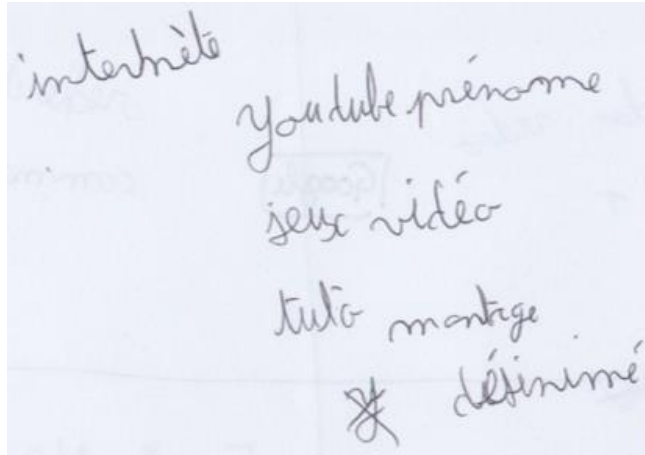 internète
youtube prénome
jeux vidéo
tuto montage
désinimé